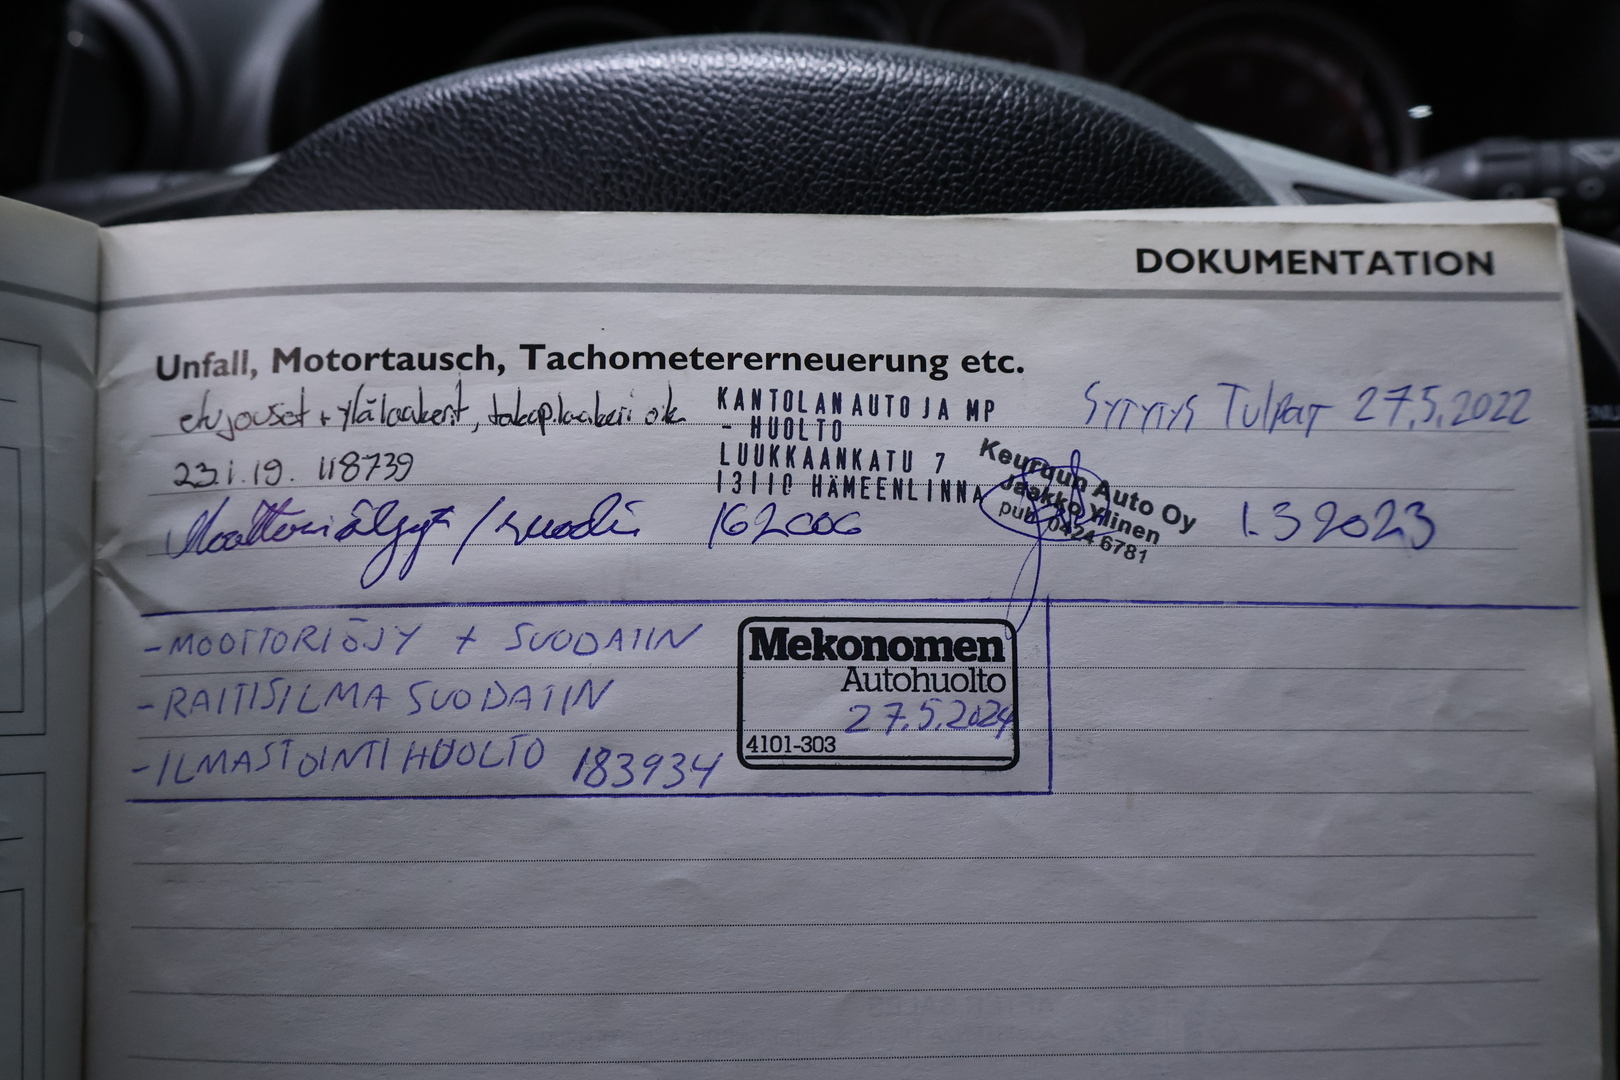 DOKUMENTATION
Unfall, Motortausch, Tachometererneuerung etc.
etujouset + ylälaakerit, takap.laakeri ok
23.1.19. 118739
KANTOLAN AUTO JA MP
- HUOLTO
LUUKKAANKATU 7
13110 HÄMEENLINNA
SYTYTYS TULPAT 27.5.2022
Moottoriöljyt / suodin 162000
Keuruun Auto Oy
Jaakko Ylinen
puh. 0424 6781
1.3 2023
- MOOTTORIÖJY + SUODATIN
- RAITISILMA SUODATIN
- ILMASTOINTI HUOLTO 183934
Mekonomen
Autohuolto
27.5.2024
4101-303